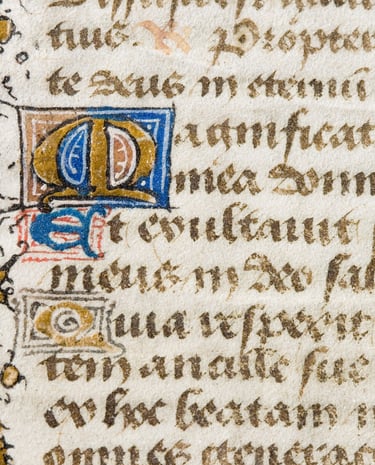 tuis. Propter
te deus in eternū
Magnificat
mea domi
Et exultavit
meus in deo sal
Quia respexit
tem ancille sue
ex hoc beatam
omnes generac